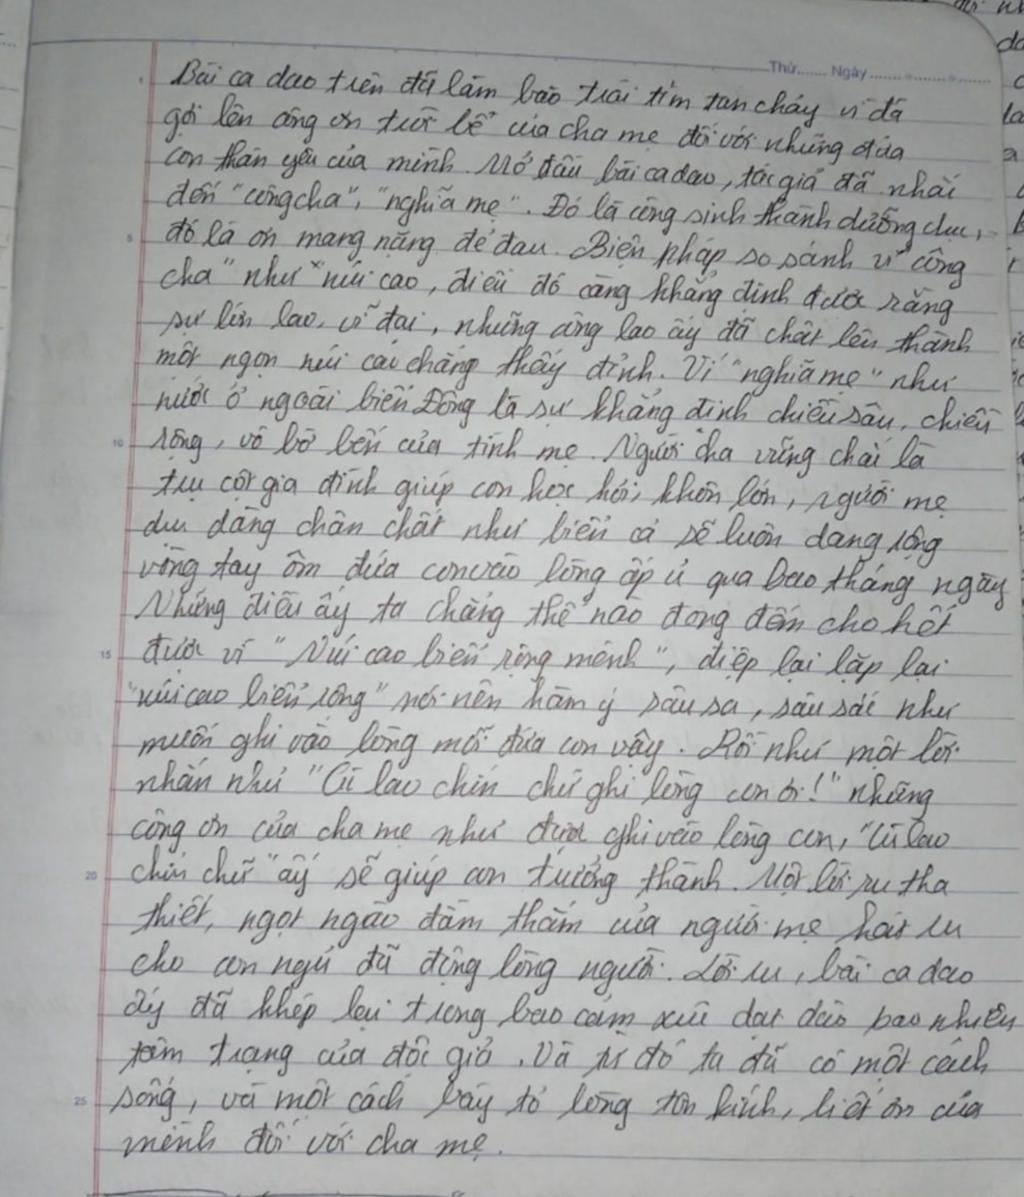 Thứ....... Ngày
Bài ca dao trên đã làm bao trái tim tan chảy vì đã
gợi lên công ơn trời bể của cha mẹ đối với những đứa
con thân yêu của mình. Mở đầu bài ca dao, tác giả đã nhắc
đến "công cha", "nghĩa mẹ". Đó là công sinh thành dưỡng dục,
5 đó là ơn mang nặng đẻ đau. Biện pháp so sánh ví "công
cha" như "núi cao, điều đó càng khẳng định được rằng
sự lớn lao, vĩ đại, những công lao ấy đã chất lên thành
một ngọn núi cao chẳng thấy đỉnh. Ví "nghĩa mẹ" như
nước ở ngoài biển Đông là sự khẳng định chiều sâu, chiều
10 rộng, vô bờ bến của tình mẹ. Người cha vững chãi là
trụ cột gia đình giúp con học hỏi, khôn lớn, người mẹ
dịu dàng chân chất như biển cả sẽ luôn dang rộng
vòng tay ôm đứa con vào lòng ấp ủ qua bao tháng ngày
Những điều ấy ta chẳng thể nào đong đếm cho hết
15 được vì "Núi cao biển rộng mênh", điệp lại lặp lại
"núi cao biển rộng" nói nên hàm ý sâu sa, sâu sắc như
muốn ghi vào lòng mỗi đứa con vậy. Rồi như một lời
nhắn như "Cù lao chín chữ ghi lòng con ơi!" những
công ơn của cha mẹ như được ghi vào lòng con, "Cù lao
20 chín chữ" ấy sẽ giúp con trưởng thành. Một lời ru tha
thiết, ngọt ngào đằm thắm của người mẹ hát ru
cho con ngủ đã động lòng người. Lời ru, bài ca dao
ấy đã khép lại trong bao cảm xúc dạt dào bao nhiêu
tâm trạng của độc giả. Và từ đó ta đã có một cách
25 sống, và một cách bày tỏ lòng tôn kính, biết ơn của
mình đối với cha mẹ.